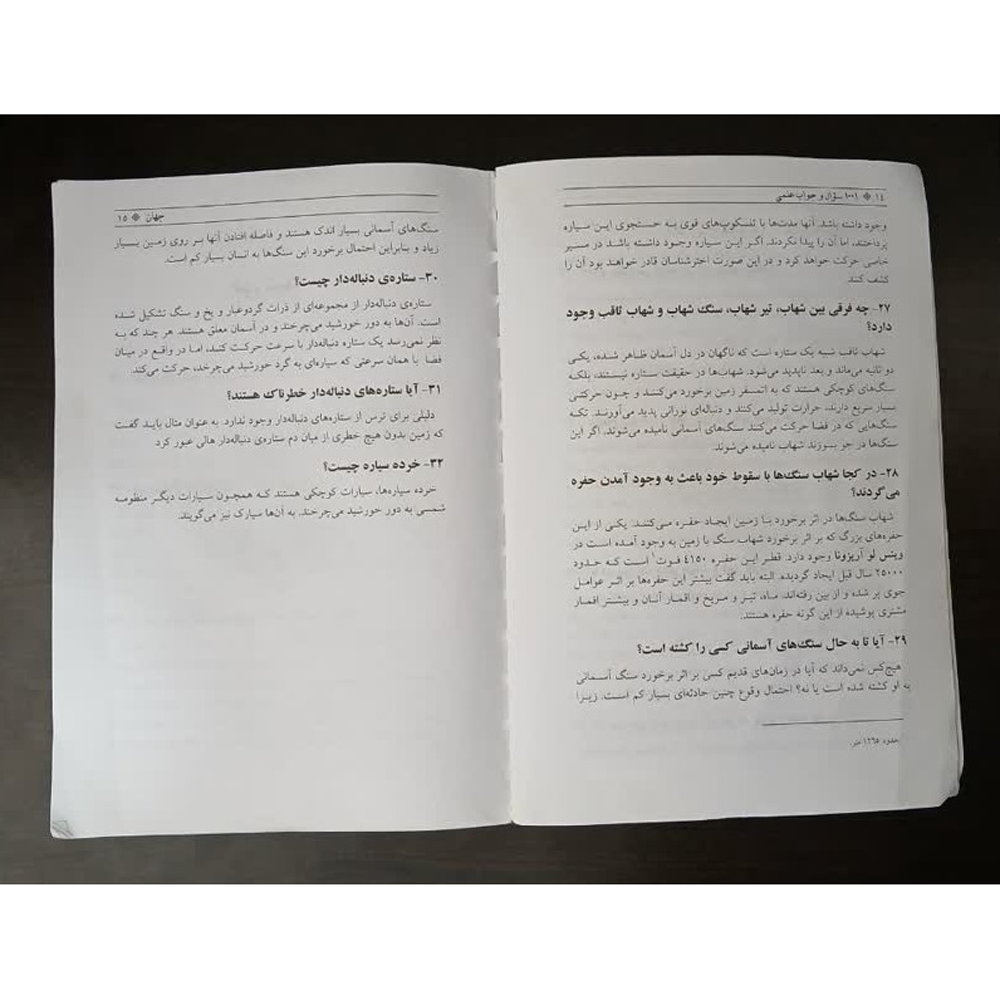 ۱۴ ❖ ۱۰۰۱ سؤال و جواب علمی
وجود داشته باشد. آنها مدت‌ها با تلسکوپ‌های قوی به جستجوی این سیاره
پرداختند، اما آن را پیدا نکردند. اگر این سیاره وجود داشته باشد در مسیر
خاصی حرکت خواهد کرد و در این صورت اخترشناسان قادر خواهند بود آن را
کشف کنند
۲۷- چه فرقی بین شهاب، تیر شهاب، سنگ شهاب و شهاب ثاقب وجود
دارد؟
شهاب ثاقب شبیه یک ستاره است که ناگهان در دل آسمان ظاهر شده، یکی
دو ثانیه می‌ماند و بعد ناپدید می‌شود. شهاب‌ها در حقیقت ستاره نیستند، بلکه
سنگ‌های کوچکی هستند که به اتمسفر زمین برخورد می‌کنند و چون حرکتی
بسیار سریع دارند، حرارت تولید می‌کنند و دنباله‌ای نورانی پدید می‌آورند. تکه
سنگ‌هایی که در فضا حرکت می‌کنند سنگ‌های آسمانی نامیده می‌شوند. اگر این
سنگ‌ها در جو بسوزند شهاب نامیده می‌شوند.
۲۸- در کجا شهاب سنگ‌ها با سقوط خود باعث به وجود آمدن حفره
می‌گردند؟
شهاب سنگ‌ها در اثر برخورد با زمین ایجاد حفره می‌کنند. یکی از این
حفره‌های بزرگ که بر اثر برخورد شهاب سنگ با زمین به وجود آمده است در
وینس لو آریزونا وجود دارد. قطر این حفره ۴۱۵۰ فوت۱ است که حدود
۲۵۰۰۰ سال قبل ایجاد گردیده. البته باید گفت بیشتر این حفره‌ها بر اثر عوامل
جوی پر شده و از بین رفته‌اند. ماه، تیر و مریخ و اقمار آنان و بیشتر اقمار
مشتری پوشیده از این گونه حفره هستند.
۲۹- آیا تا به حال سنگ‌های آسمانی کسی را کشته است؟
هیچ‌کس نمی‌داند که آیا در زمان‌های قدیم کسی بر اثر برخورد سنگ آسمانی
به او کشته شده است یا نه؟ احتمال وقوع چنین حادثه‌ای بسیار کم است. زیرا
حدود ۱۲۶۵ متر.
جهان ❖ ۱۵
سنگ‌های آسمانی بسیار اندک هستند و فاصله افتادن آنها بر روی زمین بسیار
زیاد و بنابراین احتمال برخورد این سنگ‌ها به انسان بسیار کم است.
۳۰- ستاره‌ی دنباله‌دار چیست؟
ستاره‌ی دنباله‌دار از مجموعه‌ای از ذرات گردوغبار و یخ و سنگ تشکیل شده
است. آن‌ها به دور خورشید می‌چرخند و در آسمان معلق هستند. هر چند که به
نظر نمی‌رسد یک ستاره دنباله‌دار با سرعت حرکت کنند، اما در واقع در میان
فضا با همان سرعتی که سیاره‌ای به گرد خورشید می‌چرخد، حرکت می‌کند.
۳۱- آیا ستاره‌های دنباله‌دار خطرناک هستند؟
دلیلی برای ترس از ستاره‌های دنباله‌دار وجود ندارد. به عنوان مثال باید گفت
که زمین بدون هیچ خطری از میان دم ستاره‌ی دنباله‌دار هالی عبور کرد
۳۲- خرده سیاره چیست؟
خرده سیاره‌ها، سیارات کوچکی هستند که همچون سیارات دیگر منظومه
شمسی به دور خورشید می‌چرخند. به آن‌ها سیارک نیز می‌گویند.